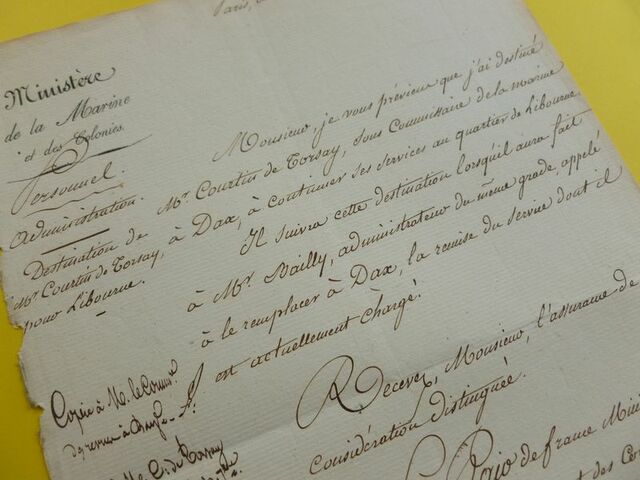 Paris,
Ministère
de la Marine
et des Colonies.
Personnel.
Administration.
Destination de
Mr. Courtin de Torsay, à Dax,
pour Libourne.
Monsieur, je vous préviens que j'ai destiné
Mr. Courtin de Torsay, sous Commissaire de la marine
à Dax, à continuer ses services au quartier de Libourne.
Il suivra cette destination lorsqu'il aura fait
à Mr. Bailly, administrateur du même grade, appelé
à le remplacer à Dax, la remise du service dont il
est actuellement chargé.
Recevez, Monsieur, l'assurance de
considération distinguée.
Copie à M. le Comm.
de Torsay
de france Mini
et des Co